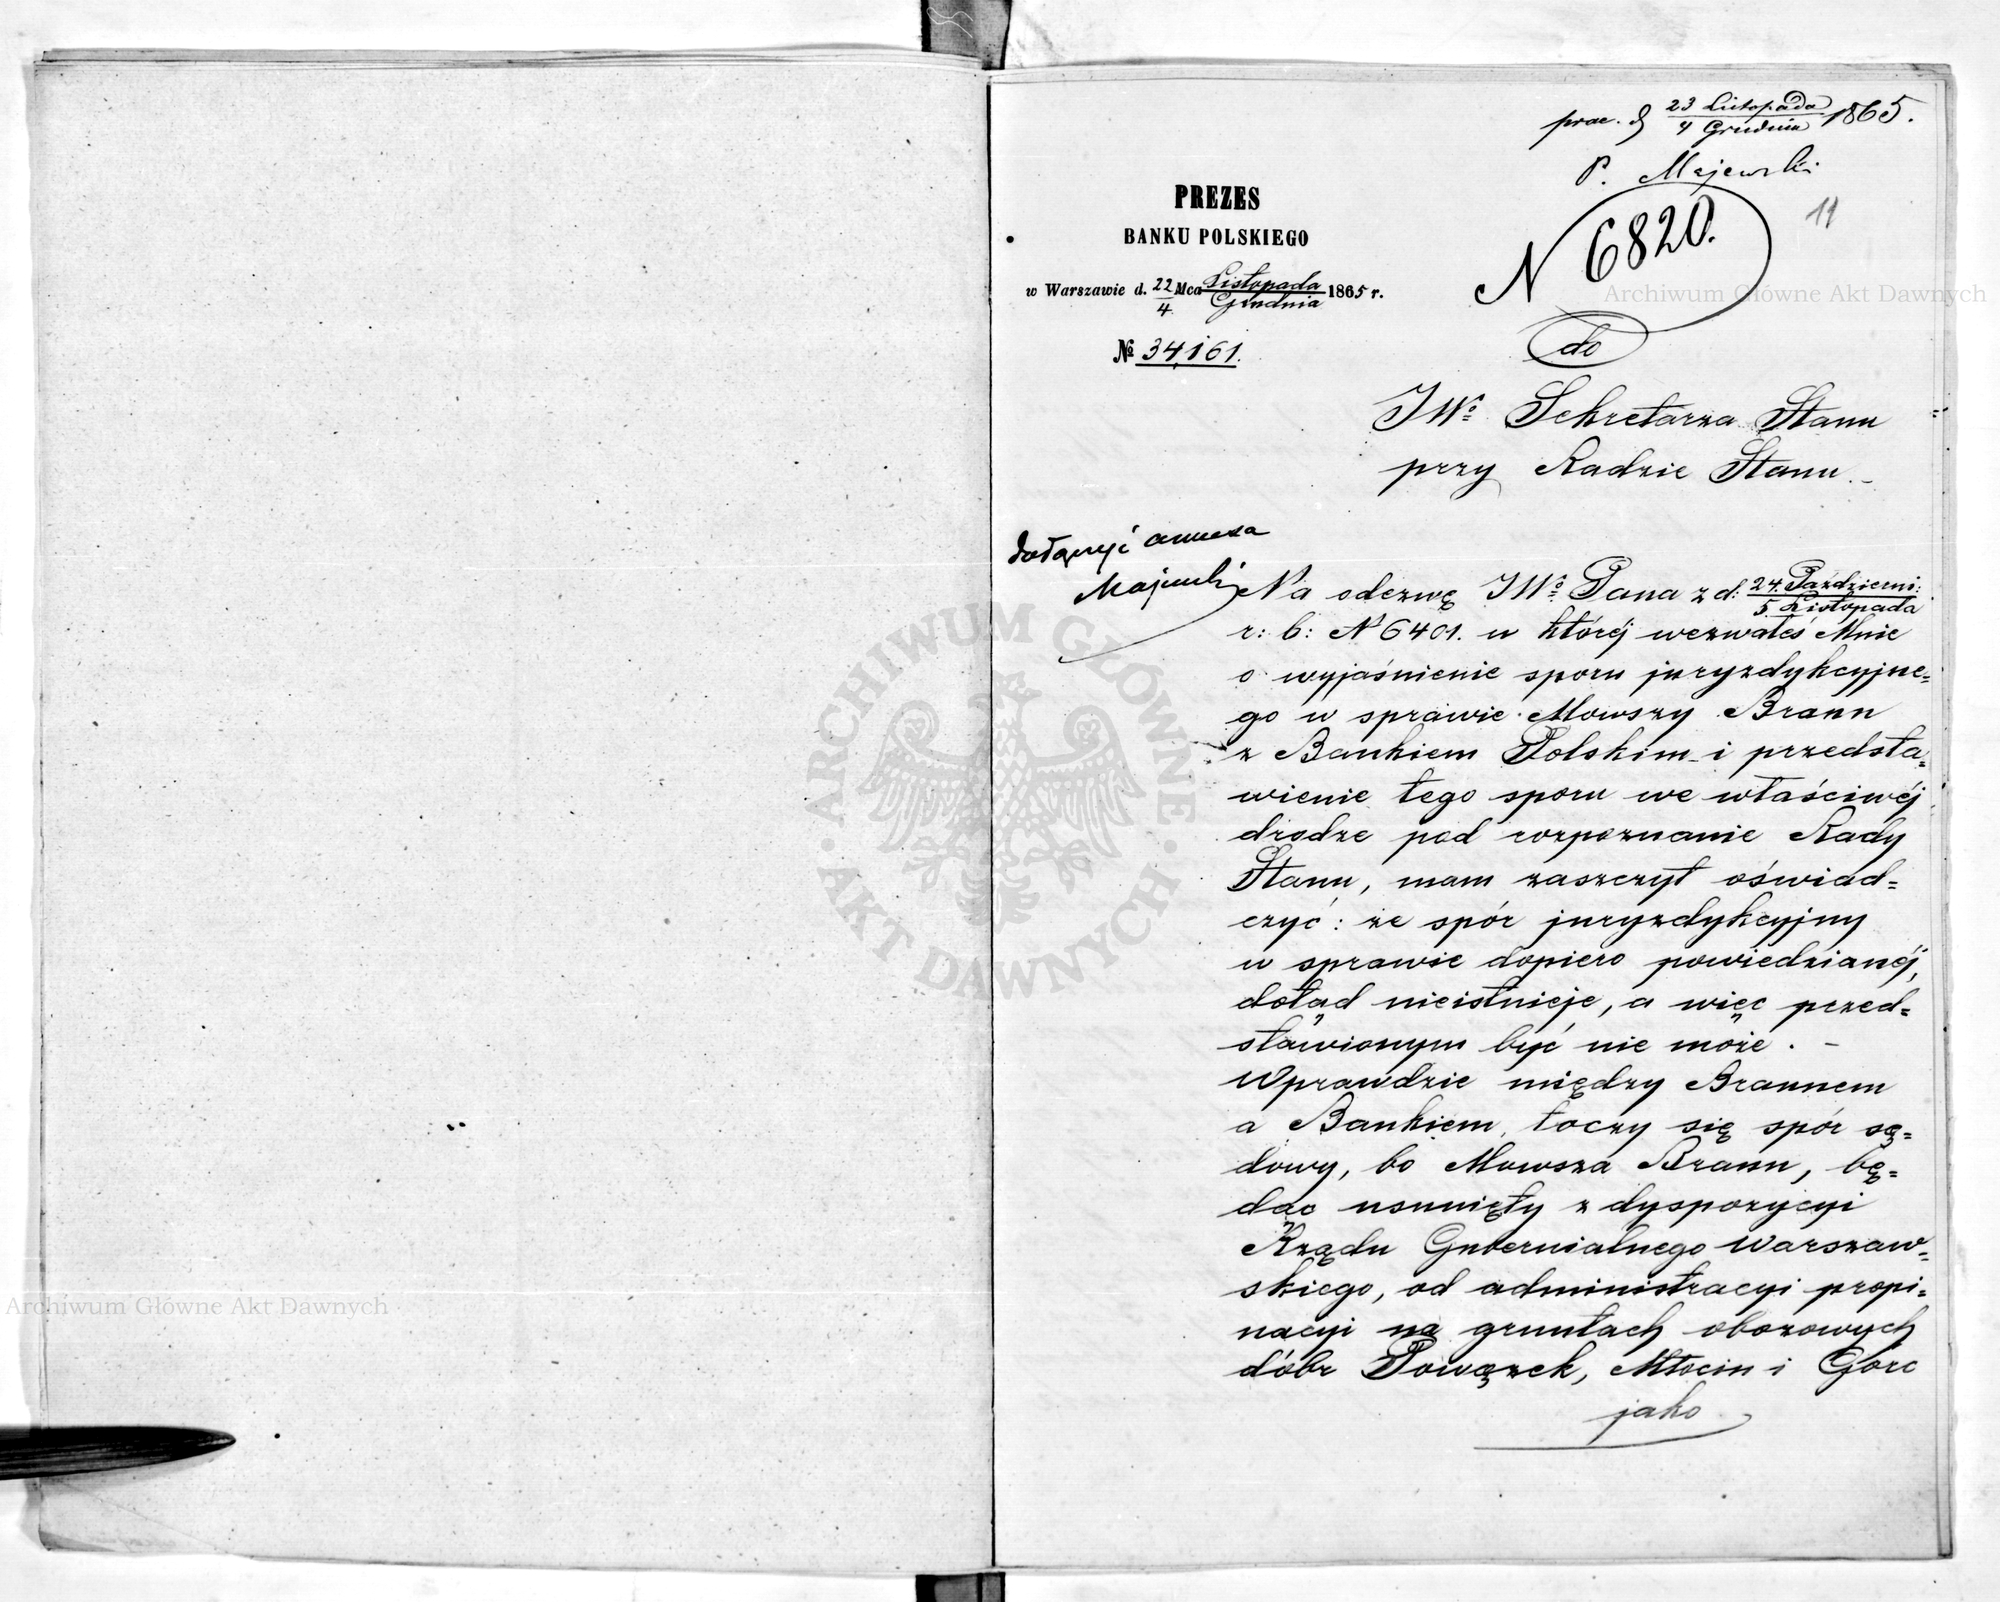 prae. d 23 Listopada / 4 Grudnia 1865.
P. Majewski
N 6820.
11
PREZES
BANKU POLSKIEGO
w Warszawie d. 22/4 Mca Listopada/Grudnia 1865 r.
№ 34,161.
do
JWo Sekretarza Stanu
przy Radzie Stanu.
dołączyć annexa
Majewski
Na odezwę JWo Pana z d: 24 Październi: / 5 Listopada
r: b: N 6401. w któréj wezwałeś Mnie
o wyjaśnienie sporu juryzdykcyjne=
go w sprawie Mowszy Brann
z Bankiem Polskim i przedsta=
wienie tego sporu we właściwéj
drodze pod rozpoznanie Rady
Stanu, mam zaszczyt oświad=
czyć: że spór juryzdykcyjny
w sprawie dopiero powiedzianéj,
dotąd nieistnieje, a więc przed=
stawionym być nie może. –
Wprawdzie między Brannem
a Bankiem, toczy się spór są=
dowy, bo Mowsza Brann, bę=
dąc usunięty z dyspozycyi
Rządu Gubernialnego Warszaw=
skiego, od administracyi propi=
nacyi na gruntach obozowych
dóbr Powązek, Młocin i Górc
jako
Archiwum Główne Akt Dawnych
ARCHIWUM GŁÓWNE AKT DAWNYCH
Archiwum Główne Akt Dawnych